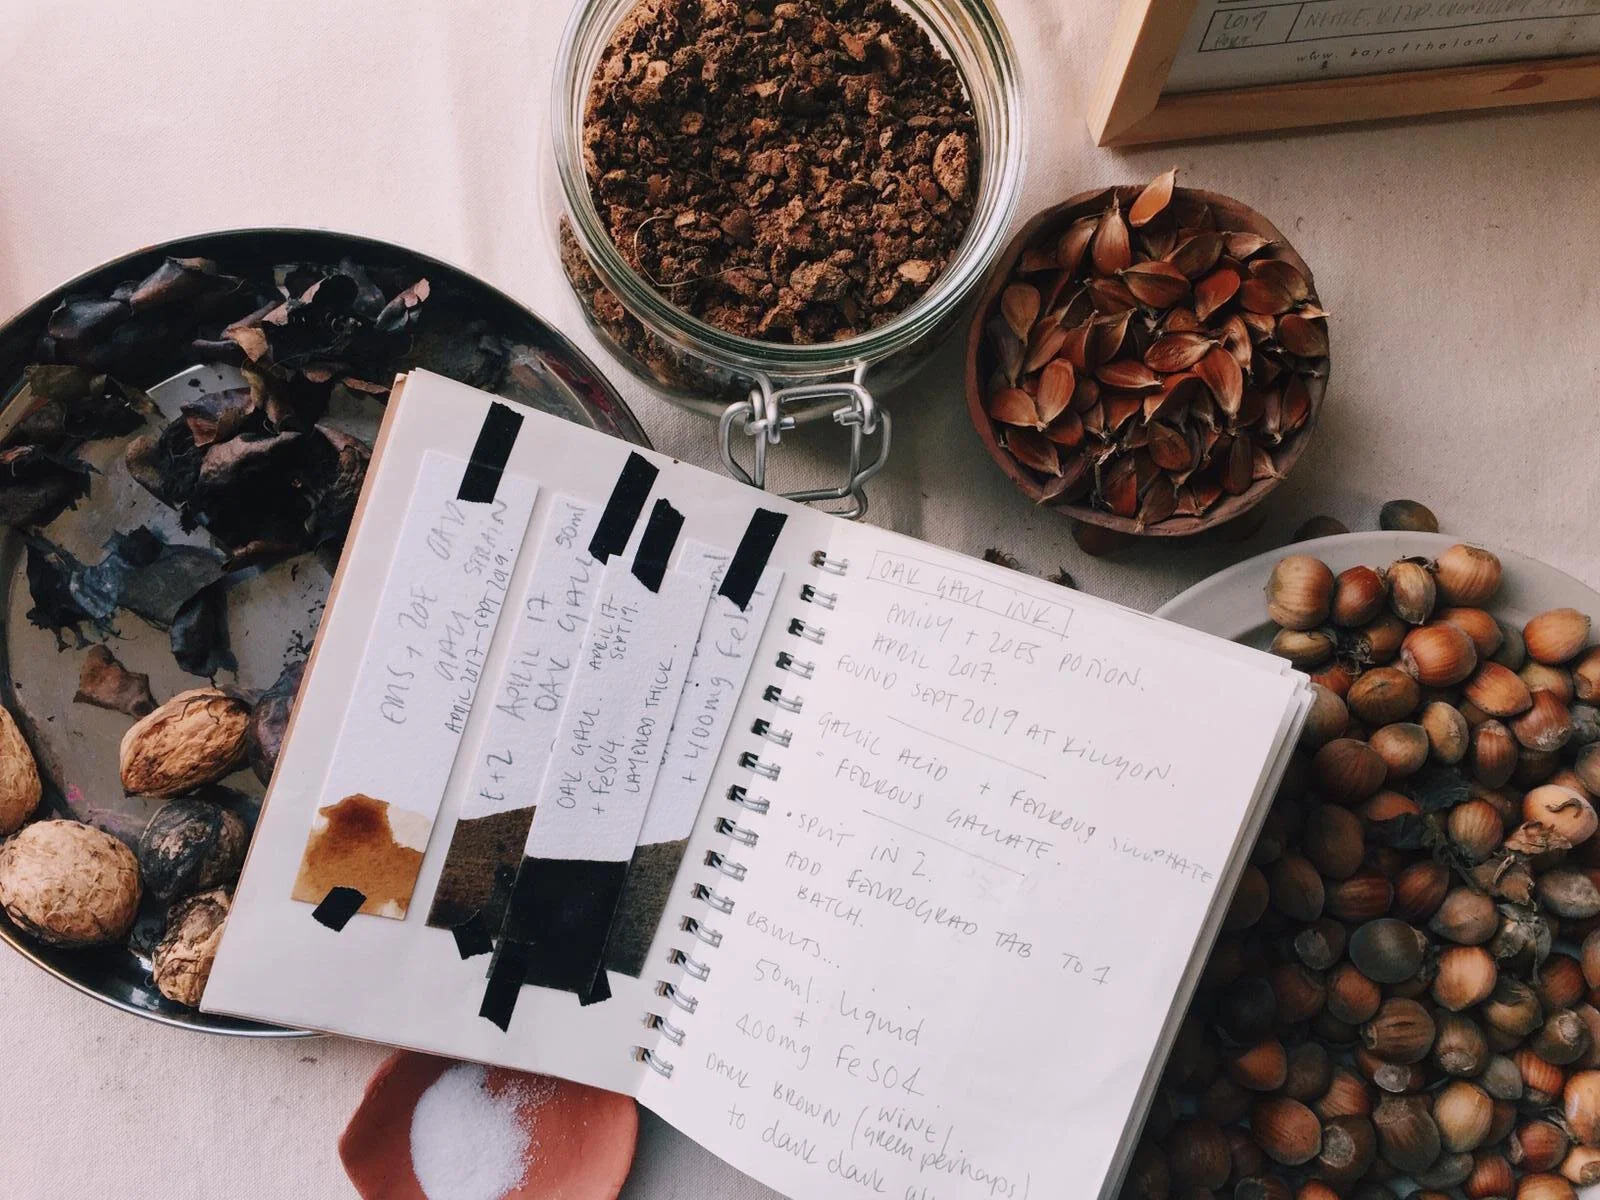 2019
PORT.
NETTLE. KELP.
www.bayoftheland.ie
EMS + ZOE OAK
GALL STRAIN
APRIL 2017-SEPT 2019.
E+Z APRIL 17
OAK GALL 50ml
OAK GALL. APRIL 17-
SEPT 19.
+ FeSO4.
LAYERED THICK.
ml
+ 400mg FeSO4
OAK GALL INK.
EMILY + ZOES POTION.
APRIL 2017.
FOUND SEPT 2019 AT KILLYON.
GALLIC ACID + FERROUS SULPHATE
" FERROUS GALLATE.
• SPLIT IN 2.
ADD FERROGRAD TAB TO 1
BATCH.
RESULTS...
50ml. liquid
+
400mg FeSO4.
DARK BROWN (WINE/
(green perhaps)
to dark dark